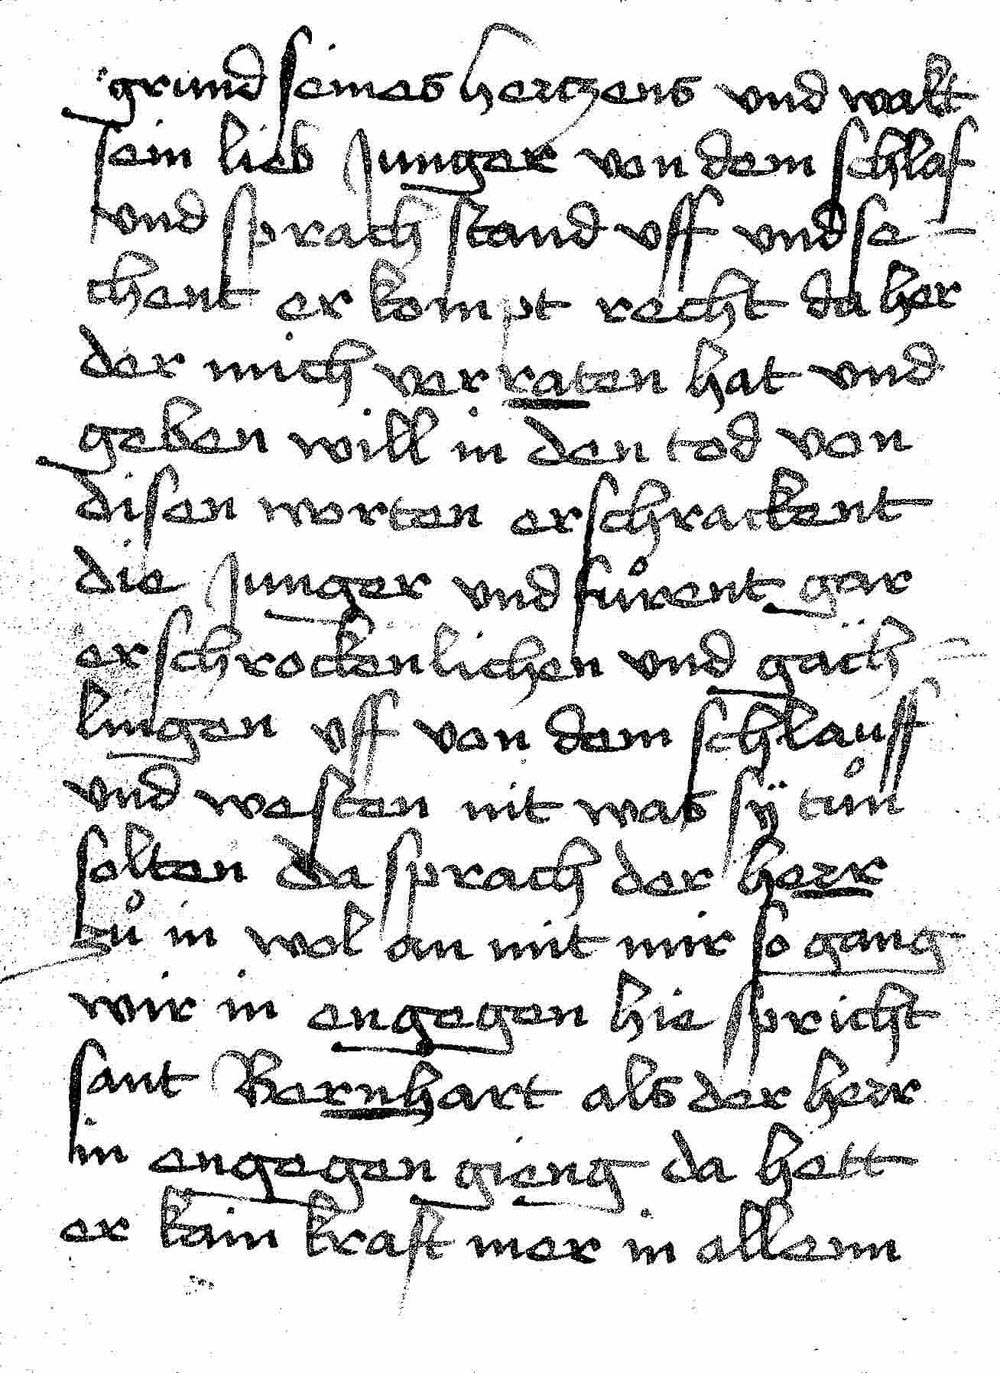 grund seines hertzens vnd wakt
sein lieb Junger von dem schlaf
vnd sprach stand vff vnd se-
chent er kompt recht da her
der mich verraten hat vnd
geben will in den tod von
disen worten erschrackent
die Junger vnd fůrent gar
erschrockenlichen vnd gäch=
lingen vff von dem schlauff
vnd westen nit was sÿ tůn
solten da sprach der herr
zů in wol an mit mir so gang
wir in engegen hie spricht
sant Bernhart als der herr
in engegen gieng da hett
er kain kraft mer in allenn